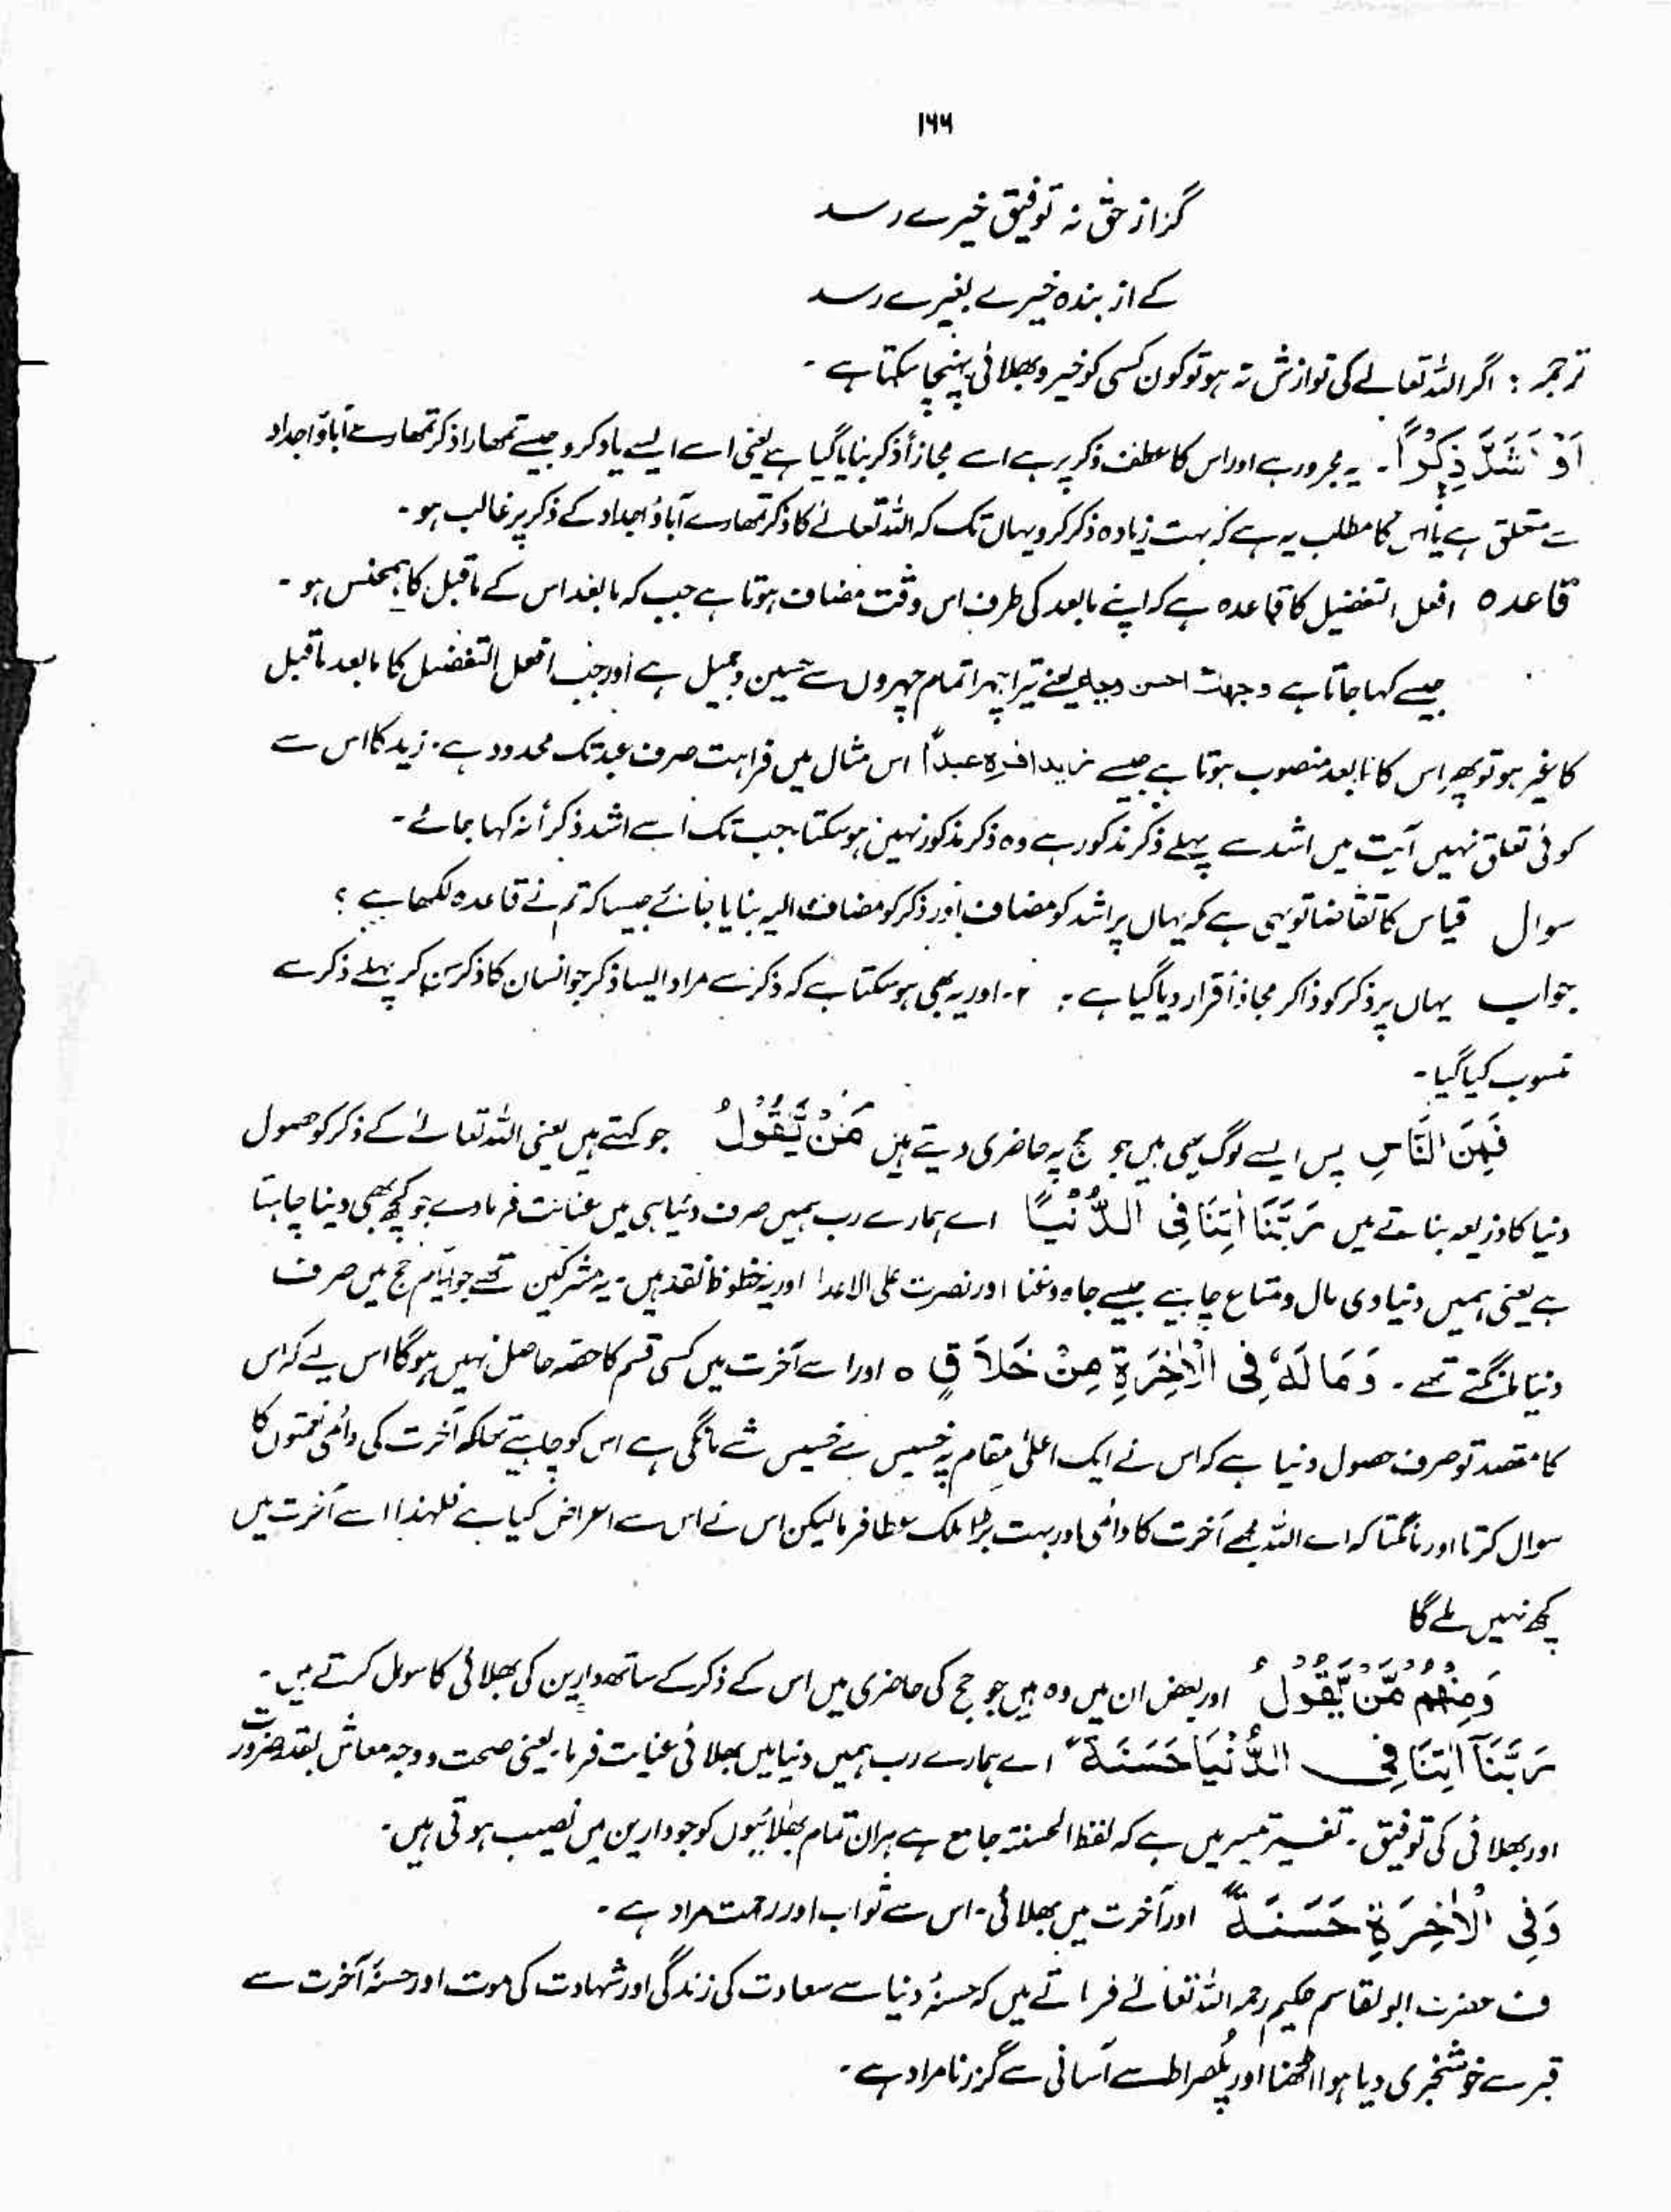 ۱۶۶
گر از حق نہ توفیق خیرے رسد
کے از بندہ خیرے بغیرے رسد
ترجمہ : اگر اللہ تعالےٰ کی نوازش نہ ہو تو کون کسی کو خیر و بھلائی پہنچا سکتا ہے ۔
اَوْ اَشَدَّ ذِكْرًا ۔ یہ مجرور ہے اور اس کا عطف ذکر پر ہے اسے مجازاً ذکر بنایا گیا ہے یعنی اسے ایسے یاد کرو جیسے تمھارا ذکر تمھارے آباؤ اجداد
سے متعلق ہے یا اس کا مطلب یہ ہے کہ بہت زیادہ ذکر کرو یہاں تک کہ اللہ تعالےٰ کا ذکر تمھارے آباؤ اجداد کے ذکر پر غالب ہو ۔
قاعدہ افعل التفضیل کا قاعدہ ہے کہ اپنے مابعد کی طرف اس وقت مضاف ہوتا ہے جب کہ مابعد اس کے ماقبل کا ہمجنس ہو ۔
جیسے کہا جاتا ہے وجھك احسن وجہ یعنے تیرا چہرا تمام چہروں سے حسین و جمیل ہے اور جب افعل التفضیل کا مابعد ماقبل
کا غیر ہو تو پھر اس کا مابعد منصوب ہوتا ہے جیسے زید افرہ عبداً اس مثال میں فراہت صرف عبد تک محدود ہے ۔ زید کا اس سے
کوئی تعلق نہیں آیت میں اشد سے پہلے ذکر مذکور ہے وہ ذکر مذکور نہیں ہو سکتا جب تک اسے اشد ذکراً نہ کہا جائے ۔
سوال قیاس کا تقاضا تو یہی ہے کہ یہاں پر اشد کو مضاف اور ذکر کو مضاف الیہ بنایا جائے جیسا کہ تم نے قاعدہ لکھا ہے ؟
جواب یہاں پر ذکر کو ذاکر مجازاً قرار دیا گیا ہے ۔ ۲۔ اور یہ بھی ہو سکتا ہے کہ ذکر سے مراد ایسا ذکر جو انسان کا ذکر سن کر پہلے ذکر سے
منسوب کیا گیا ۔
فَمِنَ النَّاسِ پس ایسے لوگ بھی ہیں جو حج پہ حاضری دیتے ہیں مَنْ يَّقُوْلُ جو کہتے ہیں یعنی اللہ تعالےٰ کے ذکر کو حصول
دنیا کا ذریعہ بناتے ہیں رَبَّنَا اٰتِنَا فِی الدُّنْيَا اے ہمارے رب ہمیں صرف دنیا ہی میں عنایت فرما دے جو کچھ بھی دینا چاہتا
ہے یعنی ہمیں دنیاوی مال و متاع چاہیے جیسے جاہ و غنا اور نصرت علی الاعدا اور یہ حظوظ نقد ہیں ۔ یہ مشرکین تھے جو ایام حج میں صرف
دنیا مانگتے تھے ۔ وَمَا لَهٗ فِی الْاٰخِرَةِ مِنْ خَلَاقٍ ہ اور اسے آخرت میں کسی قسم کا حصہ حاصل نہیں ہوگا اس لیے کہ اس
کا مقصد تو صرف حصول دنیا ہے کہ اس نے ایک اعلیٰ مقام پہ خسیس سے خسیس شے مانگی ہے اس کو چاہیے تھا کہ آخرت کی دائمی نعمتوں کا
سوال کرتا اور مانگتا کہ اے اللہ مجھے آخرت کا دائمی اور بہت بڑا ملک عطا فرما لیکن اس نے اس سے اعراض کیا ہے فلہٰذا اسے آخرت میں
کچھ نہیں ملے گا
وَمِنْهُمْ مَّنْ يَّقُوْلُ اور بعض ان میں وہ ہیں جو حج کی حاضری میں اس کے ذکر کے ساتھ دارین کی بھلائی کا سوال کرتے ہیں ۔
رَبَّنَآ اٰتِنَا فِی الدُّنْيَا حَسَنَةً اے ہمارے رب ہمیں دنیا میں بھلائی عنایت فرما ۔ یعنی صحت و وجہ معاش بقدر ضرورت
اور بھلائی کی توفیق ۔ تفسیر تیسیر میں ہے کہ لفظ الحسنۃ جامع ہے ہر ان تمام بھلائیوں کو جو دارین میں نصیب ہوتی ہیں ۔
وَفِی الْاٰخِرَةِ حَسَنَةً اور آخرت میں بھلائی ۔ اس سے ثواب اور رحمت مراد ہے ۔
ف حضرت ابو لقاسم حکیم رحمہ اللہ تعالےٰ فرماتے ہیں کہ حسنۂ دنیا سے سعادت کی زندگی اور شہادت کی موت اور حسنۂ آخرت سے
قبر سے خوشخبری دیا ہوا اٹھنا اور پلصراط سے آسانی سے گزرنا مراد ہے ۔